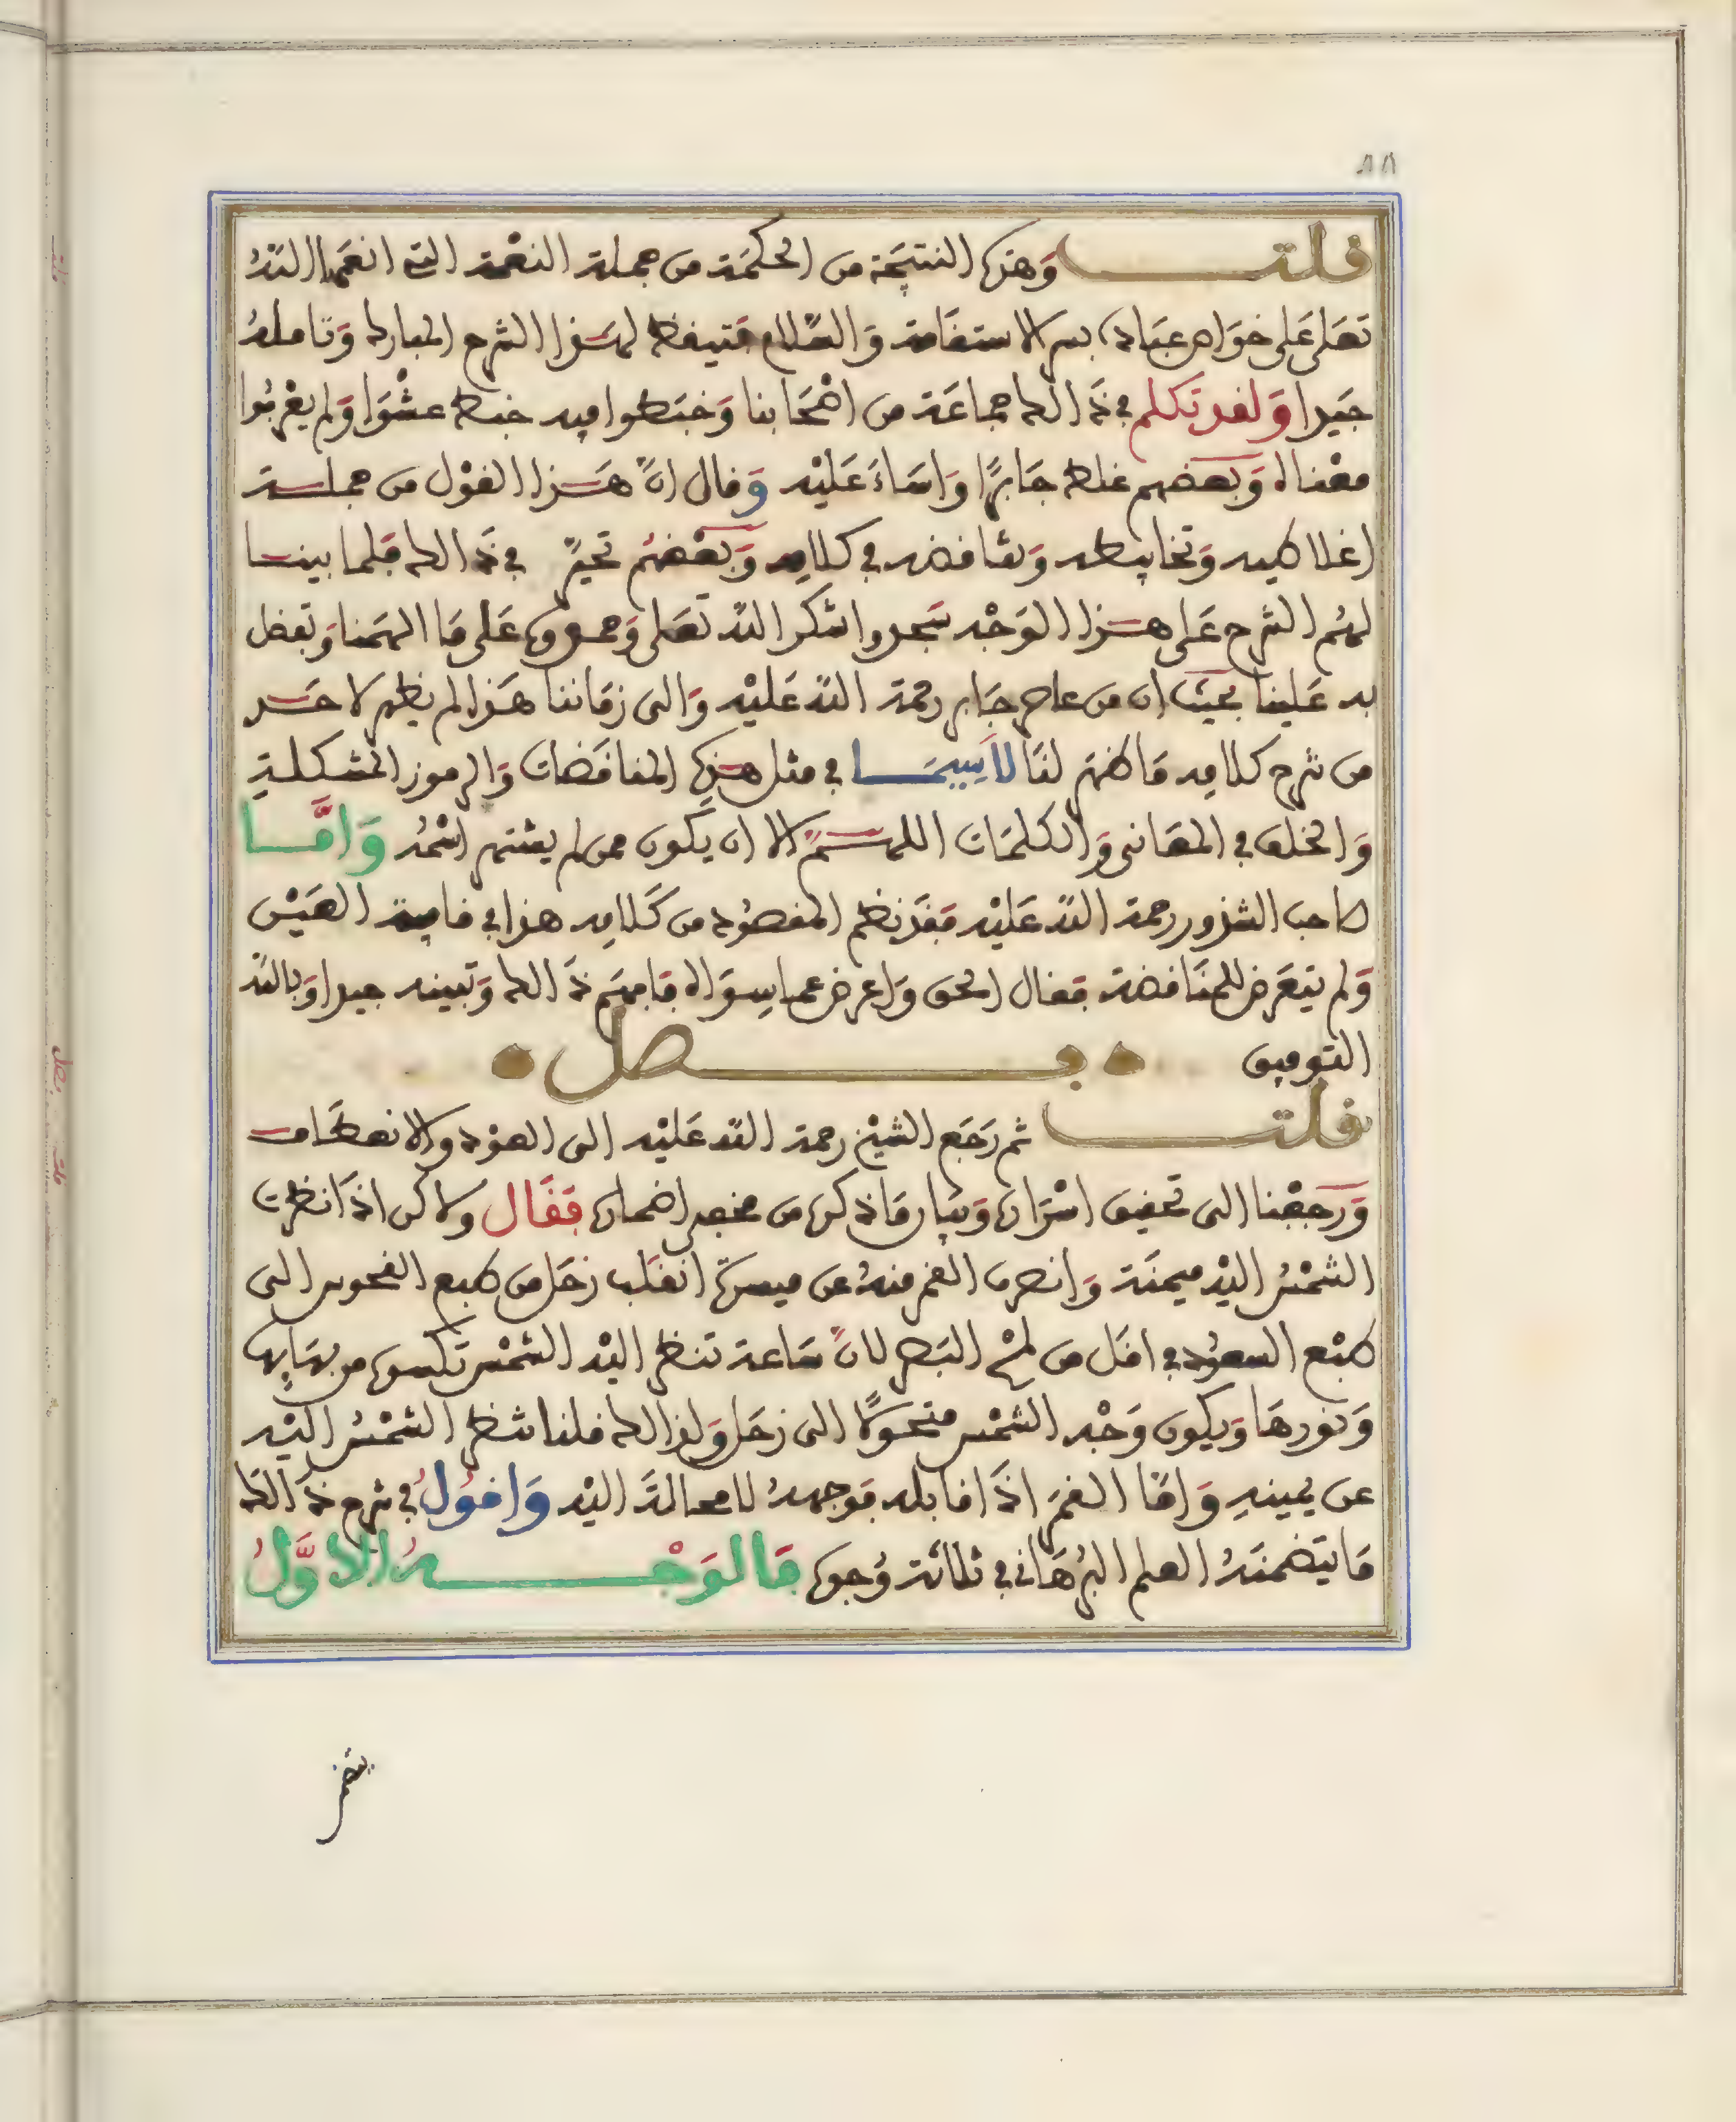 قلت وَهذه النتيجَة من الحكمَة من جملة النعْمة التي انعَمَ اللهُ
تعَلى عَلى خوَاص عبَاده بسر الاستقَامة وَالصّلاح فتيقظ لهَذا الشرح المبارك وَتاملهُ
جيَدا وَلقد تكلم في ذَالك جماعَة من اصْحَابنا وَخبَطوا فيه خبط عشْوَا وَلم يعْرفُوا
معْناه وَبعضهم غلط جَابرًا وَاسَاءَ عَليْه وَقال انّ هَذا القوْل من جملة
اغلاطيه وَتخابيطه وَتناقضه في كلامه وَبعْضهُم تحيّر في ذَالك فلما بينا
لهُم الشرح عَلى هذا الوَجْه سَجدوا شكر الله تعَلى وَحمدوه عَلى مَا الهمَنا وَتفضل
به عَلينا بحيْث ان من عاصر جَابر رحمة الله عَليْه وَالى زمَاننا هَذا لم يظهر لاحَد
من شرح كلامه مَا ظهر لنَا لاَسِيمَا في مثل هَذِه المناقضَات وَالرموز المشكلة
وَالخلف في المعَاني وَالكلمَات اللهمّ الا ان يَكون ممن لم يشتهر اسْمُه وَامَّا
صاحب الشذور رحمة الله عَليْه فقَد نظم المقصُود من كَلامه هذا في قافية العَيْن
وَلم يتعَرض للمنَاقضة فقال الحق وَاعرض عما سِوَاه فافهَم ذَالك وَتبينه جيدا وَبالله
التوفيق
فصل
قلت ثم رَجَع الشيْخ رحمة الله عَليْه الى العوْد والانعطَاف
وَرجعْنا الى تحقيق اسْرَاره وَبيَان مَا ذكره من مخفي اضماره فقَال ولاكن اذَا نظرت
الشمْسُ اليْه ميمنَة وَانصرف القمر منهُ عن ميسرة انقلَب زحَل من طبع النحوس الى
طبْع السعوُد في اقَل من لمْح البَصر لانّ سَاعة تنظر اليْه الشمْس تكسوه من بهَايها
وَنورهَا وَيكون وَجْه الشمْس متحوّلا الى زحَل وَلذالك قلنا تنظر الشمْسُ اليْه
عن يمينهِ وَامّا القمَر اذَا قابله فوجههُ لا محالَة اليْه وَاقوُلُ في شرح ذَالك
مَا يتضمنَهُ العلم البُرهَاني في ثلاثَة وُجوه فَالوَجْهُ الاوَّلُ
يتضمن